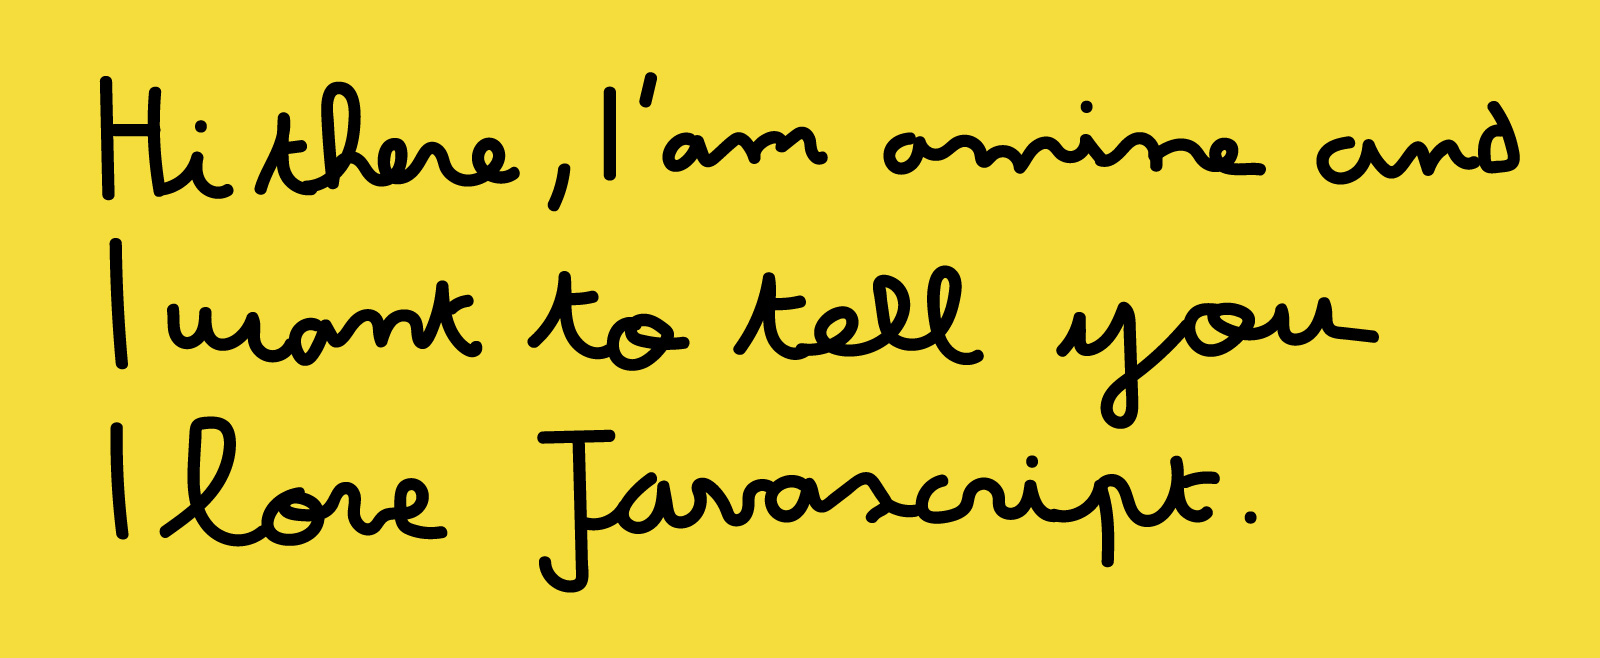 Hi there, I'am amine and
I want to tell you
I love Javascript.